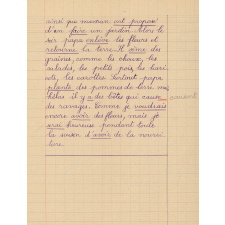 ainsi que maman ont proposé
d'en faire un jardin. Alors le
soir papa enlève les fleurs et
retourne la terre. Il sème des
graines, comme les choux, les
salades, les petits pois, les hari
cots, les carottes. Surtout papa
plante des pommes de terre, ma
hélas il y a des bêtes qui causent
des ravages. Comme je voudrais
encore avoir des fleurs, mais je
serai heureuse pendant toute
la saison d'avoir de la nourri
ture.